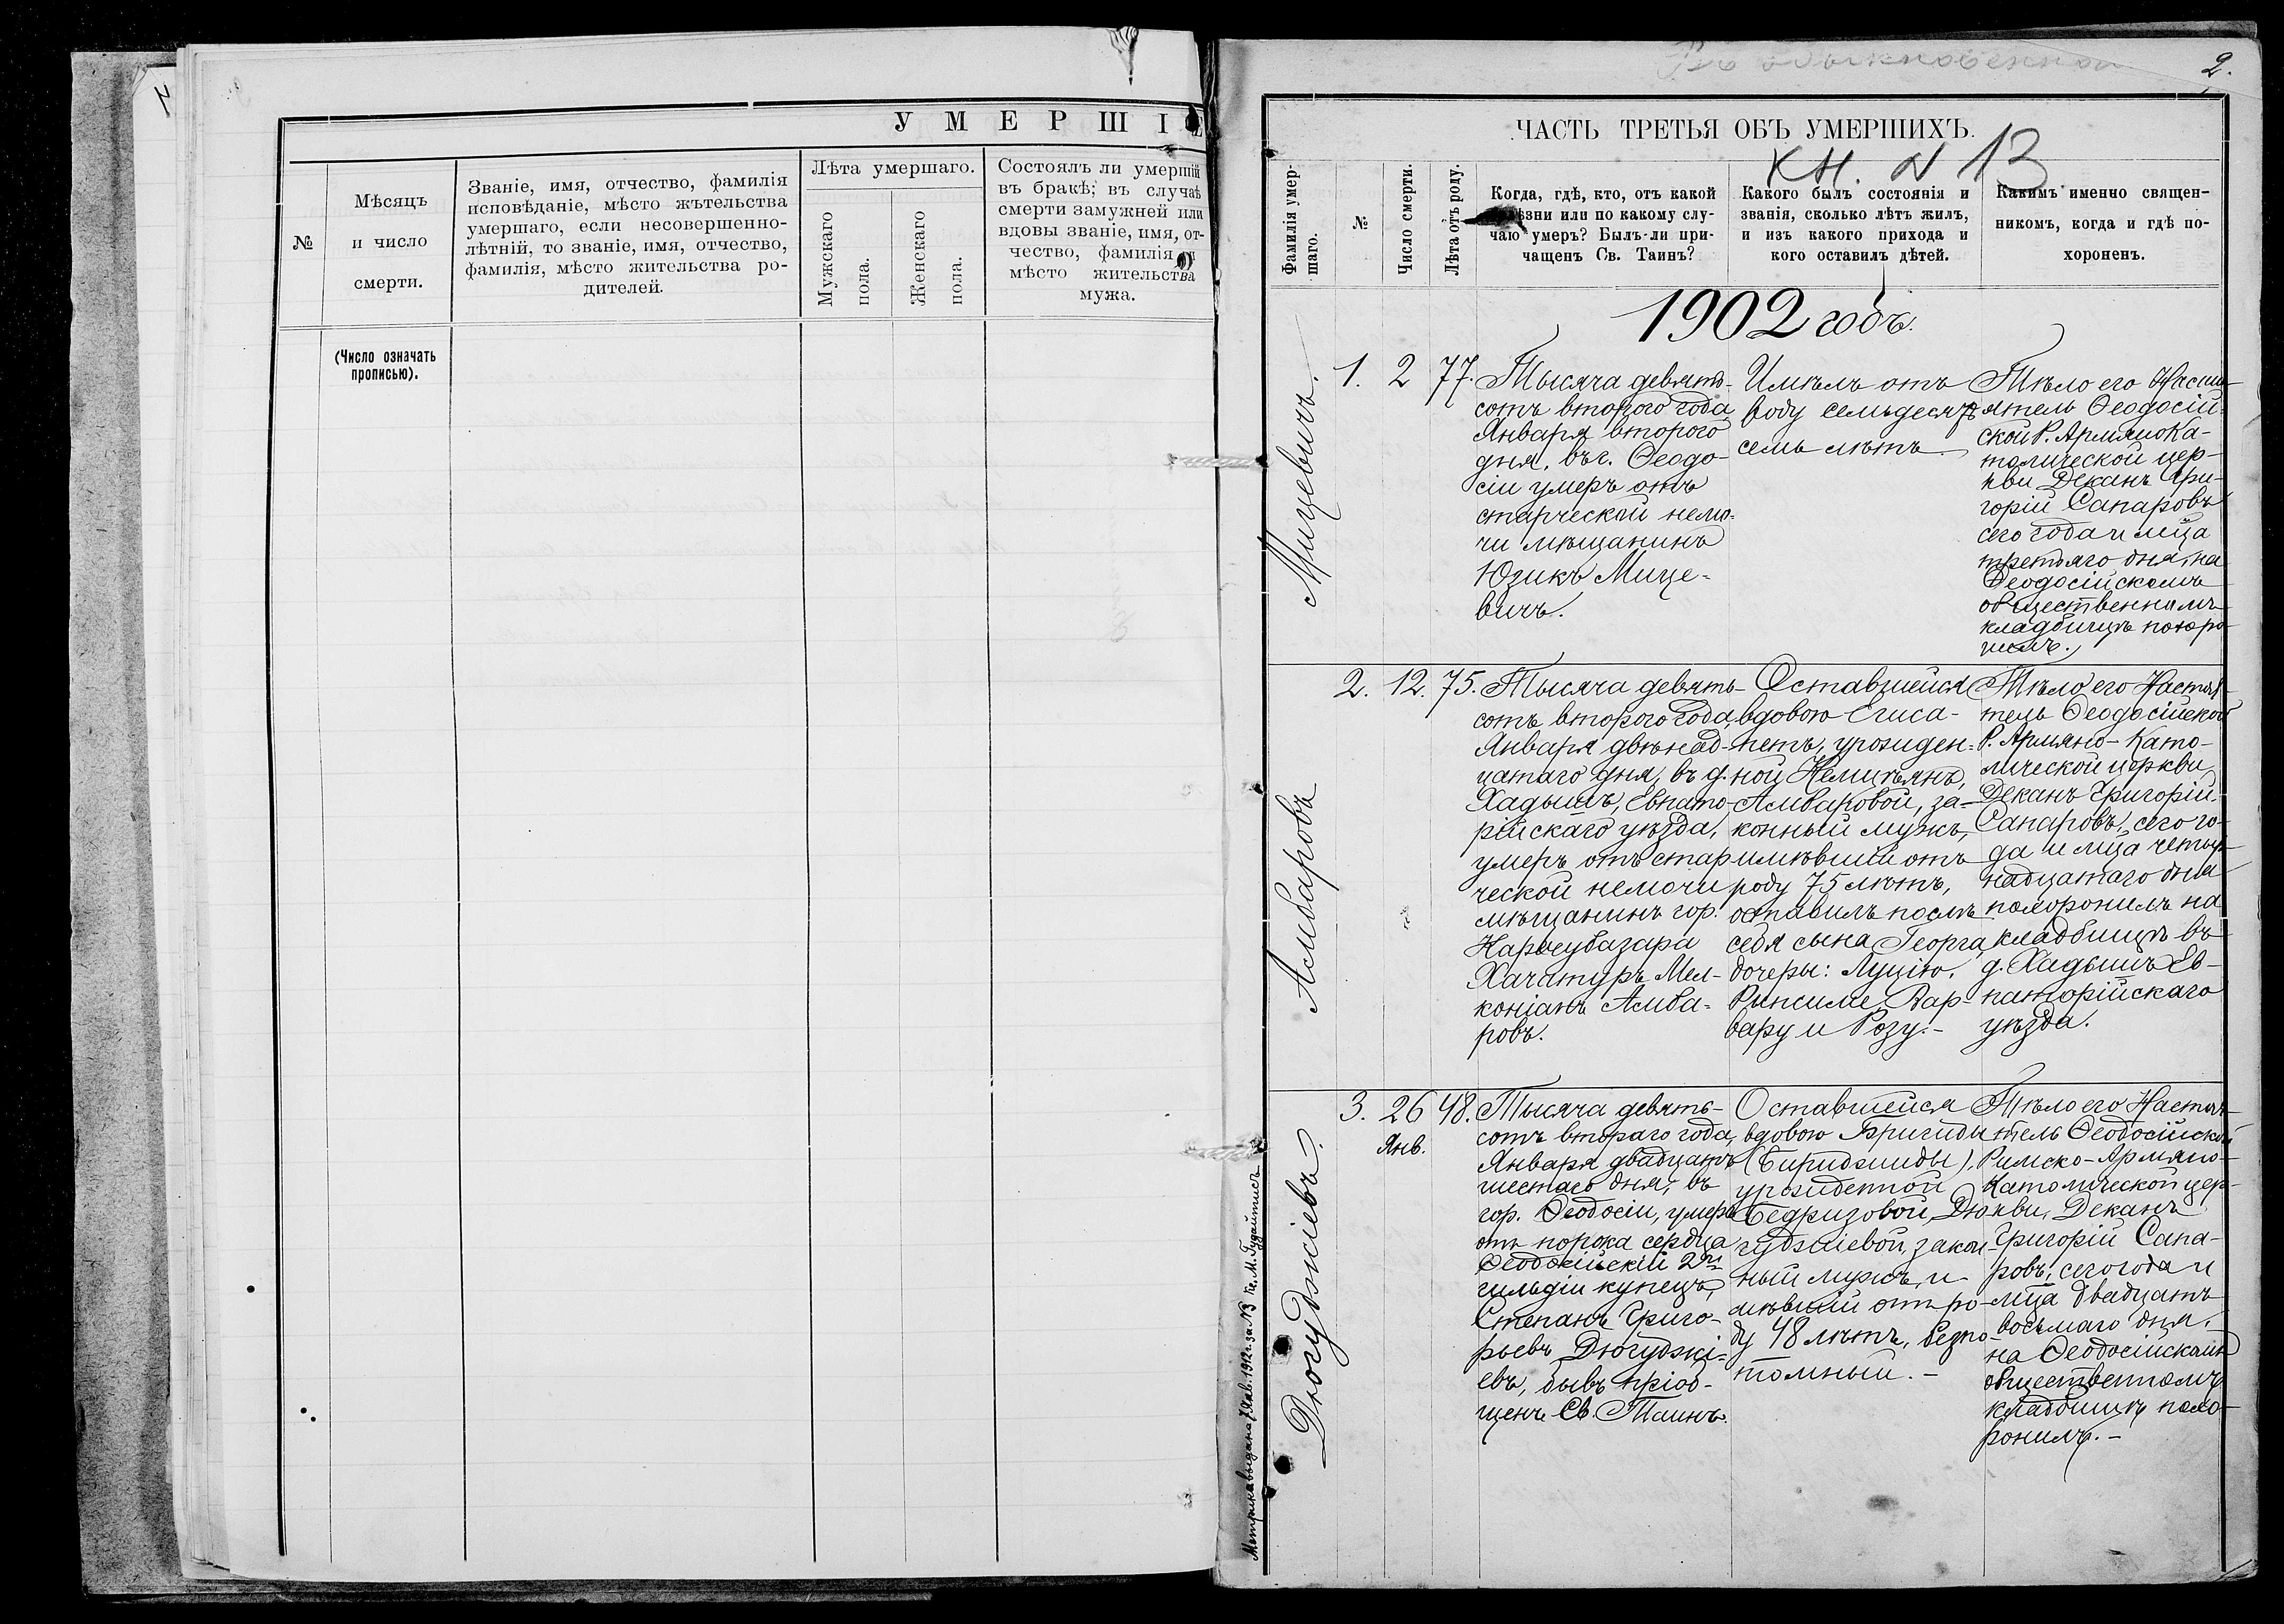 УМЕРШІЕ
№
Мѣсяцъ
и число
смерти.
Званіе, имя, отчество, фамилія
исповѣданіе, мѣсто жѣтельства
умершаго, если несовершенно-
лѣтній, то званіе, имя, отчество,
фамилія, мѣсто жительства ро-
дителей.
Лѣта умершаго.
Мужскаго
пола.
Женскаго
пола.
Состоялъ ли умершій
въ бракѣ; въ случаѣ
смерти замужней или
вдовы званіе, имя, от-
чество, фамилія и
мѣсто жительства
мужа.
(Число означать
прописью).
2.
ЧАСТЬ ТРЕТЬЯ ОБЪ УМЕРШИХЪ.
КН. N 13
Фамилія умер-
шаго.
№
Число смерти.
Лѣта отъ роду.
Когда, гдѣ, кто, отъ какой
болѣзни или по какому слу-
чаю умеръ? Былъ-ли при-
чащенъ Св. Таинъ?
Какого былъ состоянія и
званія, сколько лѣтъ жилъ,
и изъ какого прихода и
кого оставилъ дѣтей.
Какимъ именно священ-
никомъ, когда и гдѣ по-
хороненъ.
1902 годъ.
Мицевичъ.
1.
2
77.
Тысяча девять-
сотъ второго года
Января второго
дня, въ г. Ѳеодо-
сіи умеръ отъ
старческой немо-
чи мѣщанинъ
Юзикъ Мице-
вичъ.
Имѣлъ отъ
роду семьдесятъ
семь лѣтъ.
Тѣло его Насто-
ятель Ѳеодосій-
ской Р. Армяно Ка-
толической цер-
кви Деканъ Гри-
горій Сапаровъ
сего года и мѣца
третьяго дня, на
Ѳеодосійскомъ
общественномъ
кладбищѣ похоро-
нилъ.
Амбаровъ
2.
12.
75.
Тысяча девять-
сотъ второго года,
Января двѣнад-
цатаго дня, въ д.
Хадышъ, Евпато-
рійскаго уѣзда,
умеръ отъ стар
ческой немочи
мѣщанинъ гор.
Карасубазара
Хачатуръ Мел-
коніанъ Амба-
ровъ.
Оставшейся
вдовою Елиса-
петъ, урожден-
ной Немцеянъ,
Амбаровой, за-
конный мужъ,
имѣвшій отъ
роду 75 лѣтъ,
оставилъ послѣ
себя сына Георга,
дочеры: Луцію,
Рипсиме, Вар-
вару и Розу.-
Тѣло его Настоя-
тель Ѳеодосійской
Р. Армяно-Като-
лической церкви
Деканъ Григорій
Сапаровъ, сего го-
да и мѣца четыр-
надцатаго дня
похоронилъ на
кладбищѣ въ
д. Хадышъ Ев-
паторійскаго
уѣзда.
Дюгуджіевъ.
3.
26
Янв.
48.
Тысяча девять-
сотъ втораго года,
Января двадцать
шестаго дня, въ
гор. Ѳеодосіи, умеръ
отъ порока сердца
Ѳеодосійскій 2й
гильдіи купецъ,
Степанъ Григо-
рьевъ Дюгуджі-
евъ, бывъ пріоб-
щенъ Св. Таинъ.
Оставшейся
вдовою Бригиды
(Бириджиды),
урожденной
Бедризовой, Дю
гуджіевой, закон-
ный мужъ, и
мѣвшій отъ ро-
ду 48 лѣтъ, безпо-
томный.-
Тѣло его Настоя-
тель Ѳеодосійской
Римско-Армяно-
Католической цер-
кви, Деканъ
Григорій Сапа-
ровъ, сего года и
мѣца двадцать
восьмаго дня,
на Ѳеодосійскомъ
общественномъ
кладбищѣ похо-
ронилъ.-